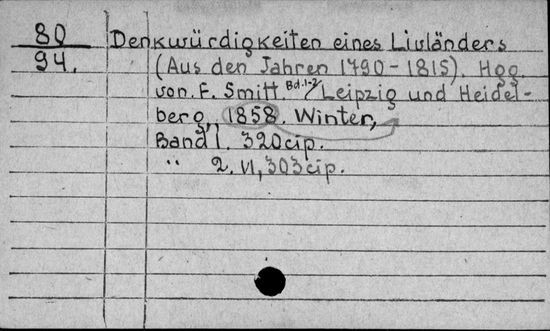 80
94.
Denkwürdigkeiten eines Livländers
(Aus den Jahren 1790-1815). Hgg.
von. F. Smitt. Bd. 1-2 Leipzig und Heidel-
berg, 1858. Winter,
Band 1. 320 cip.
" 2. VI, 303 cip.